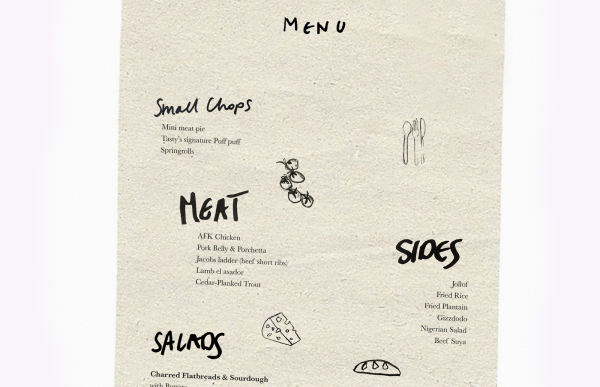 MENU
Small Chops
Mini meat pie
Tasty's signature Puff puff
Springrolls
MEAT
AFK Chicken
Pork Belly & Porchetta
Jacobs ladder (beef short ribs)
Lamb el asador
Cedar-Planked Trout
SIDES
Jollof
Fried Rice
Fried Plantain
Gizzdodo
Nigerian Salad
Beef Suya
SALADS
Charred Flatbreads & Sourdough